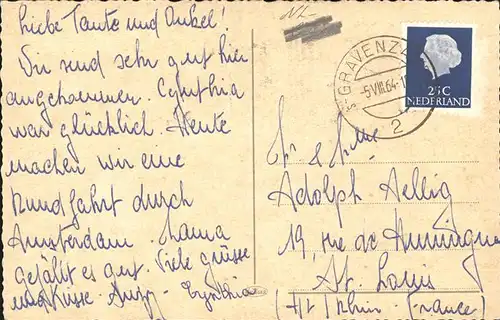 Liebe Tante und Onkel!
Wir sind sehr gut hier
angekommen. Cynthia
war glücklich. Heute
machen wir eine
Rundfahrt durch
Amsterdam. Mama
gefällt es gut. Viele Grüsse
und Küsse. Cynthia
NL
'S-GRAVENZ
-5.VIII.64-1
2
25C
NEDERLAND
Fr & Mme
Adolph Aellig
19, rue de Huningue
St. Louis
(Ht Rhin - France)